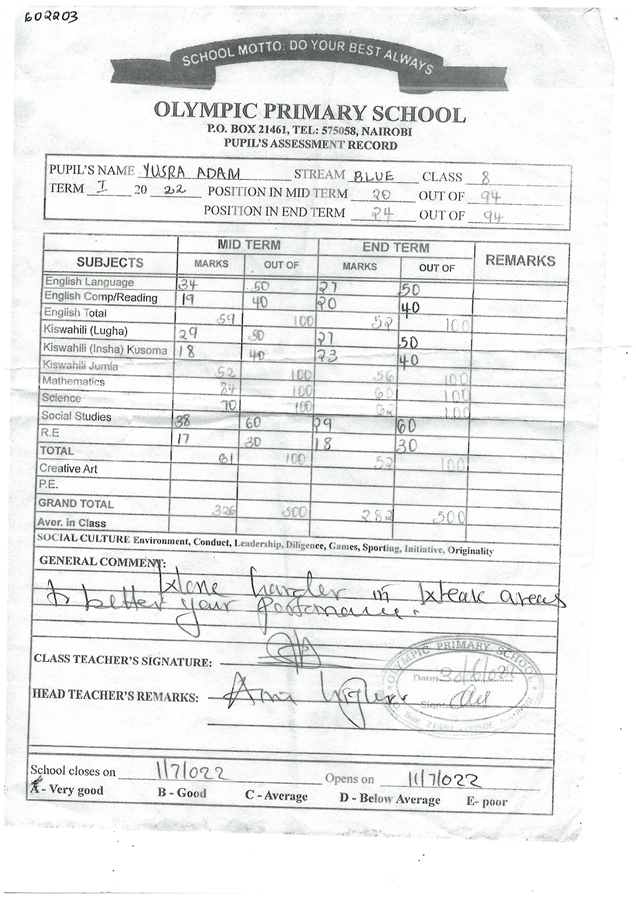 602203
SCHOOL MOTTO: DO YOUR BEST ALWAYS
OLYMPIC PRIMARY SCHOOL
P.O. BOX 21461, TEL: 575058, NAIROBI
PUPIL'S ASSESSMENT RECORD
PUPIL'S NAME YUSRA ADAM STREAM BLUE CLASS 8
TERM I 20 22 POSITION IN MID TERM 20 OUT OF 94
POSITION IN END TERM 24 OUT OF 94
MID TERM END TERM
SUBJECTS MARKS OUT OF MARKS OUT OF REMARKS
English Language 34 50 27 50
English Comp/Reading 19 40 20 40
English Total 59 100 52 100
Kiswahili (Lugha) 29 50 27 50
Kiswahili (Insha) Kusoma 18 40 23 40
Kiswahili Jumla 52 100 56 100
Mathematics 84 100 60 100
Science 70 100 100
Social Studies 38 60 29 60
R.E 17 30 18 30
TOTAL 61 100 52 100
Creative Art
P.E.
GRAND TOTAL 326 500 282 500
Aver. in Class
SOCIAL CULTURE Environment, Conduct, Leadership, Diligence, Games, Sporting, Initiative, Originality
GENERAL COMMENT: harder in areas
to better your
CLASS TEACHER'S SIGNATURE:
OLYMPIC PRIMARY SCHOOL
Date:
HEAD TEACHER'S REMARKS: Aim higher.
Sign
School closes on 1/7/022 Opens on 11/7/022
A - Very good B - Good C - Average D - Below Average E- poor